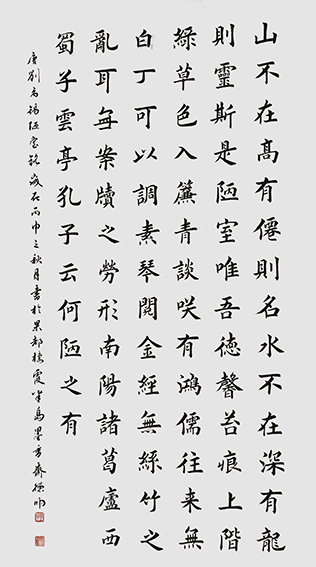 山不在高有僊則名水不在深有龍
則靈斯是陋室唯吾徳馨苔痕上階
綠草色入簾青談咲有鴻儒往来無
白丁可以調素琴閱金經無絲竹之
亂耳無案牘之勞形南陽諸葛廬西
蜀子雲亭孔子云何陋之有
唐劉禹錫陋室銘歲在丙申之秋月書於京都棲霞半島墨香齋